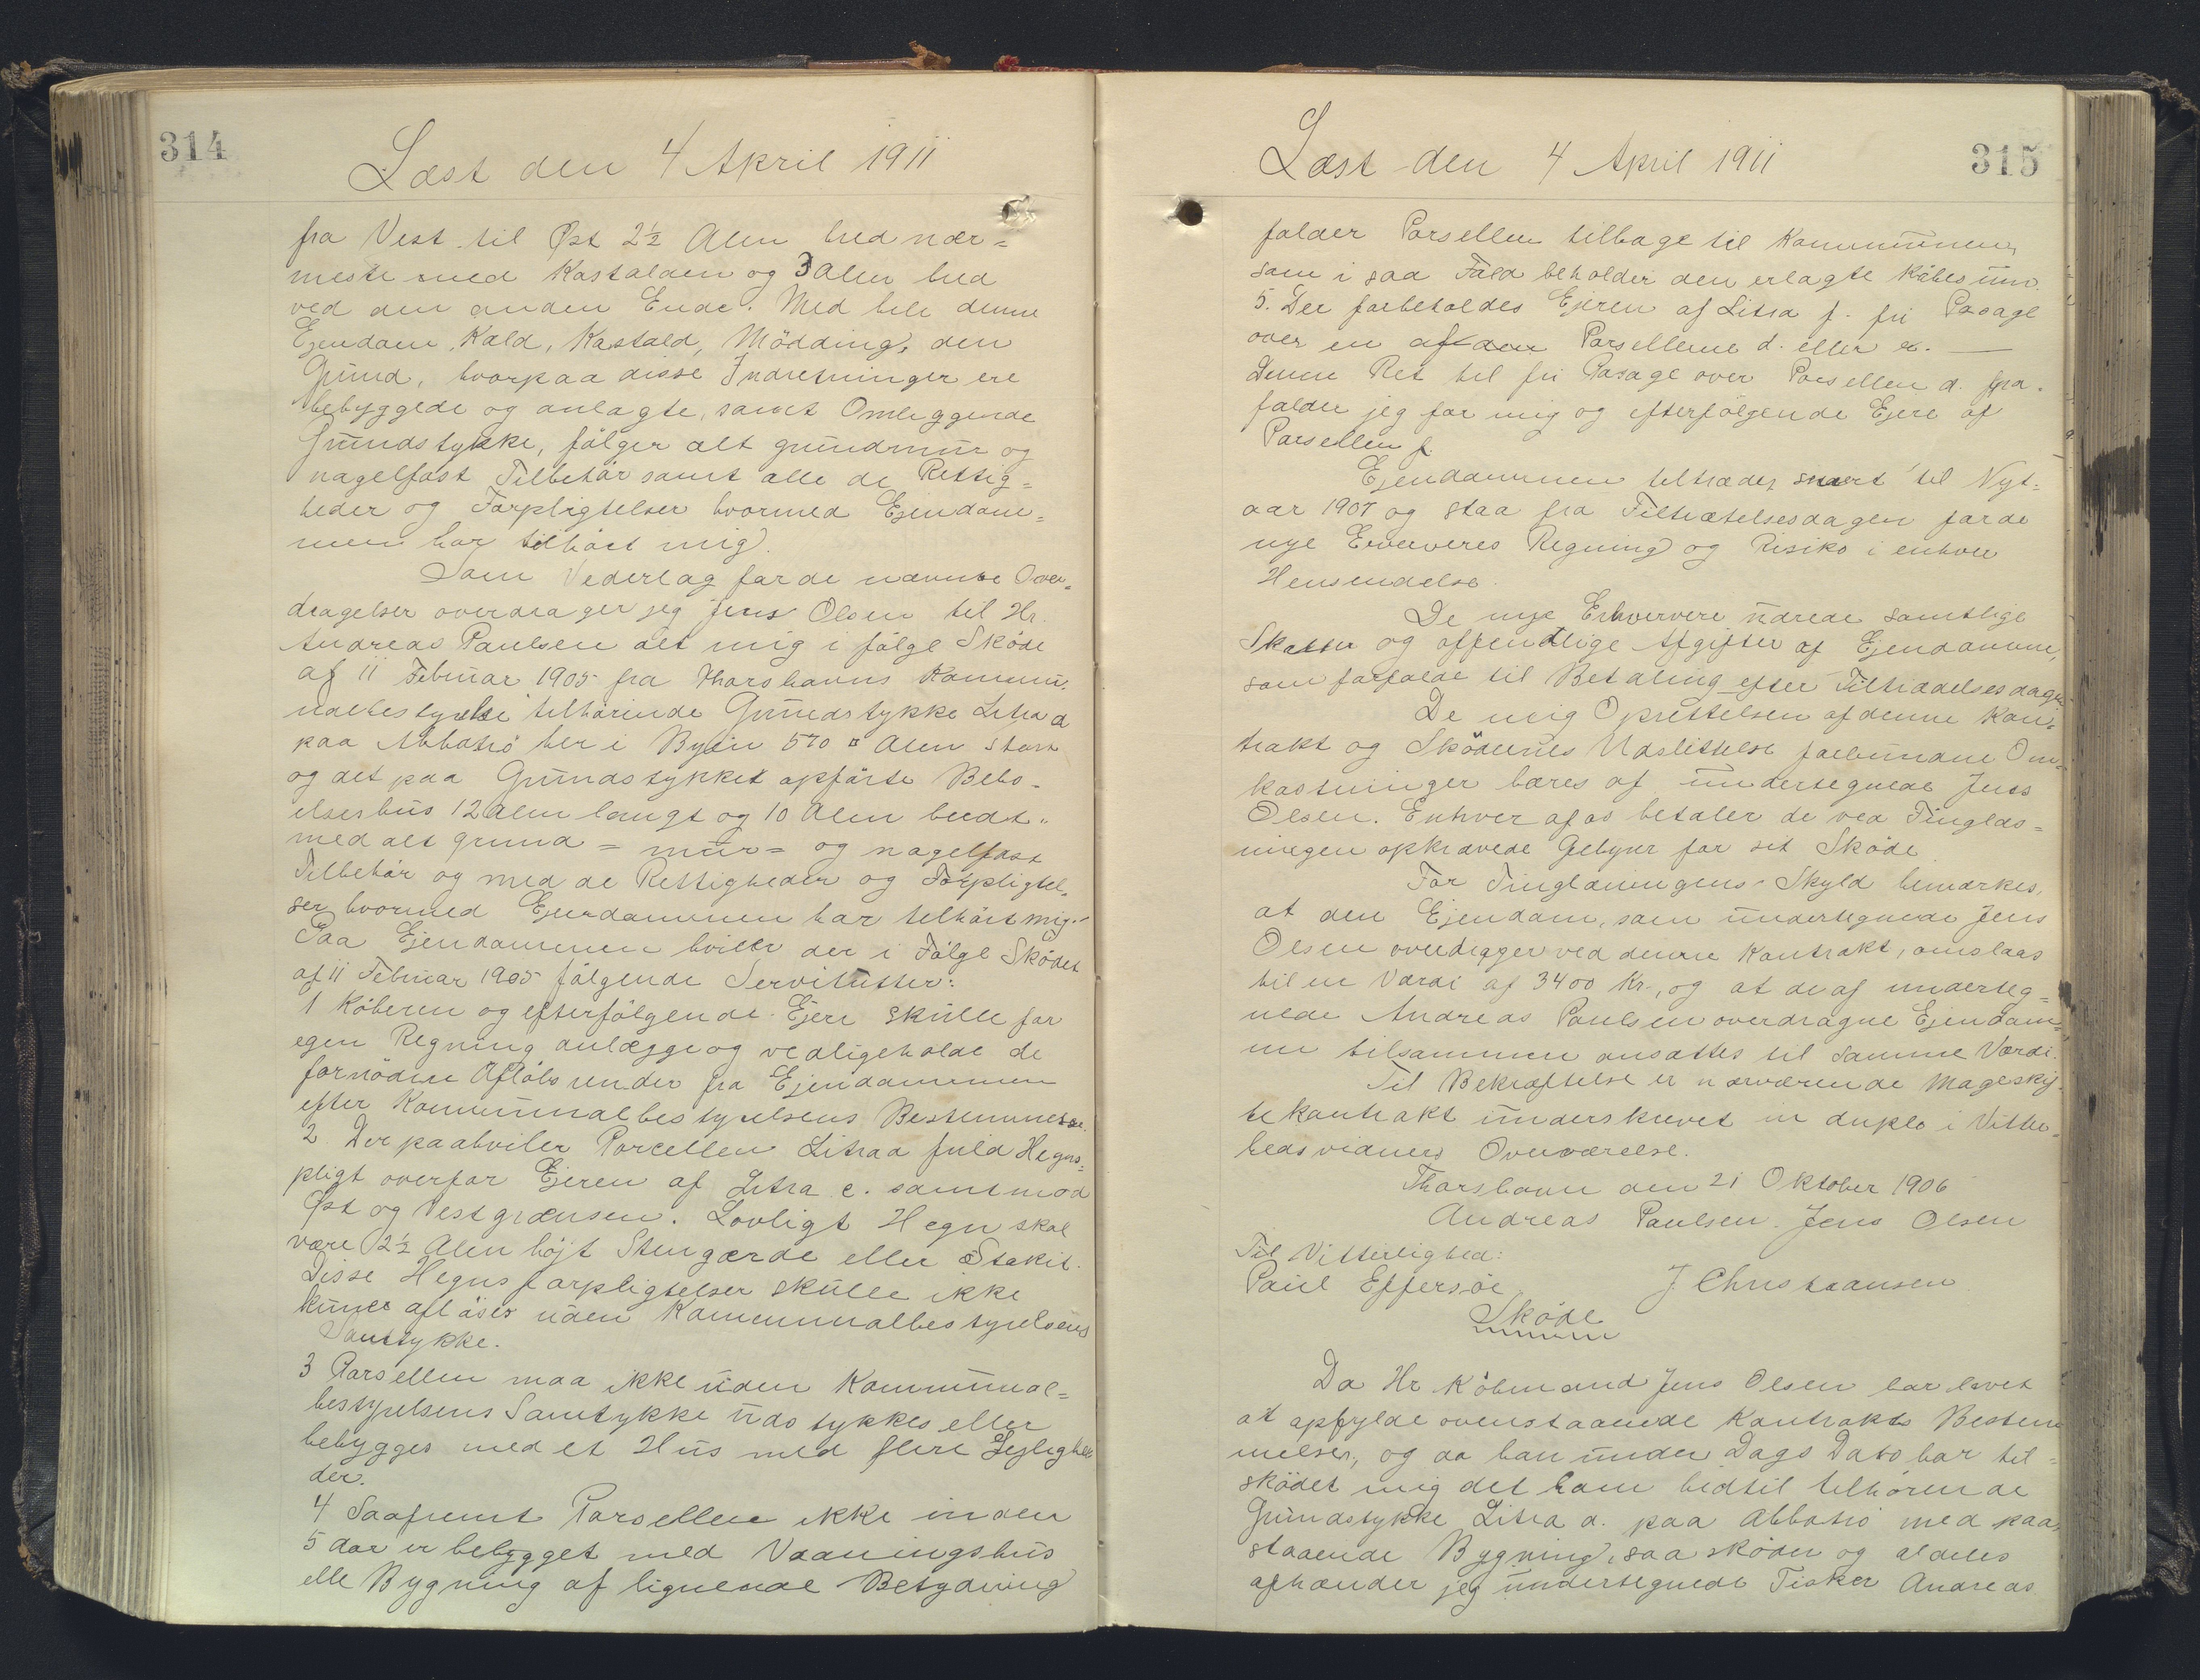 314
Læst den 4 April 1911
fra Vest til Øst 2½ Alen bred nær=
meste med Kastalden og 3 Alen bred
ved den anden Ende. Med hele denne
Ejendom, Kald, Kastald, Mödding, den
Grund, hvorpaa disse Indretninger ere
bebyggede og anlagte, samt Omliggende
Grundstykke, fölger alt grundmur og
nagelfast Tilbehör samt alle de Rettig=
heder og Forpligtelser hvormed Ejendom=
men har tilhört mig.
Som Vederlag for de nævnte Over=
dragelser overdrager jeg Jens Olsen til Hr.
Andreas Paulsen det mig i fölge Sköde
af 11 Februar 1905 fra Thorshavns Kommu=
nalbestyrelse tilhörende Grundstykke Litra d
paa Abbatrö her i Byen 570 ¤ Alen stort
og det paa Grundstykket opförte Bebo=
elseshus 12 Alen langt og 10 Alen bredt
med alt grund= mur= og nagelfast
Tilbehör og med de Rettigheder og Forpligtel=
ser hvormed Ejendommen har tilhört mig.
Paa Ejendommen hviler der i Fölge Sködet
af 11 Februar 1905 fölgende Servitutter:
1 Köberen og efterfölgende Ejere skulle for
egen Regning anlægge og vedligeholde de
fornödne Aflöbsrender fra Ejendommen
efter Kommunalbestyrelsens Bestemmelse.
2. Der paahviler Parcellen Litra d fuld Hegns=
pligt overfor Ejeren af Litra e. samt mod
Öst og Vestgrænsen. Lovligt Hegn skal
være 2½ Alen höjt Stengærde eller Stakit.
Disse Hegnsforpligtelser skulle ikke
kunne aflöses uden Kommunalbestyrelsens
Samtykke.
3 Parsellen maa ikke uden Kommunal=
bestyrelsens Samtykke udstykkes eller
bebygges med et Hus med flere Lejlighe
der.
4 Saafremt Parsellen ikke inden
5 Aar er bebygget med Vaaningshus
elle Bygning af lignende Betydning
Læst den 4 April 1911
315
falder Parsellen tilbage til Kommunen,
som i saa Fald beholder den erlagte Köbesum.
5. Der forbeholdes Ejeren af Litra f. fri Pasage
over en af den Parsellerne d. eller e.
Denne Ret til fri Pasage over Parsellen d. fra=
falder jeg for mig og efterfölgende Ejere af
Parsellen f.
Ejendommen tiltrædes snart til Nyt=
aar 1907 og staa fra Tiltrætelsesdagen for de
nye Erververes Regning og Risiko i enhver
Hensendelse.
De nye Erhververe udrede samtlige
Skatter og offentlige Afgifter af Ejendomme,
som forfalde til Betaling efter Tiltrædelsesdagen
De mig Oprettelsen af denne Kon=
trakt og Sködernes Udslettelse forbundne Om=
kostninger bæres af undertegnede Jens
Olsen. Enhver af os betaler de ved Tinglæs=
ningen opkrævede Gebyrer for sit Sköde
For Tinglæningens Skyld bemærkes,
at den Ejendom, som undertegnede Jens
Olsen overdrager ved denne Kontrakt, anslaas
til en Værdi af 3400 Kr., og at de af underteg=
nede Andreas Paulsen overdragne Ejendom=
me tilsammen ansættes til samme Værdi.
Til Bekræftelse er nærværende Mageskif=
te kontrakt underskrevet in duplo i Vitter=
hedsvidners Overværelse.
Thorshavn den 21 Oktober 1906
Andreas Paulsen. Jens Olsen
Til Vitterlighed:
Paul Effersöe J. Christiansen
Sköde
Da Hr Köbmand Jens Olsen har lovet
at opfylde ovenstaaende Kontrakts Bestem
melser, og da han under Dags Dato har til=
sködet mig det ham hidtil tilhörende
Grundstykke Litra d. paa Abbatrö med paa=
staaende Bygning, saa sköder og aldeles
afhænder jeg undertegnede Fisker Andreas